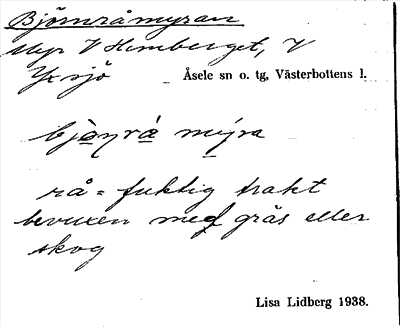 Björnråmyran
Myr V Hemberget, V
Yxsjö Åsele sn o. tg, Västerbottens l.
bjòṇrå mýra
rå = fuktig trakt
bevuxen med gräs eller
skog
Lisa Lidberg 1938.